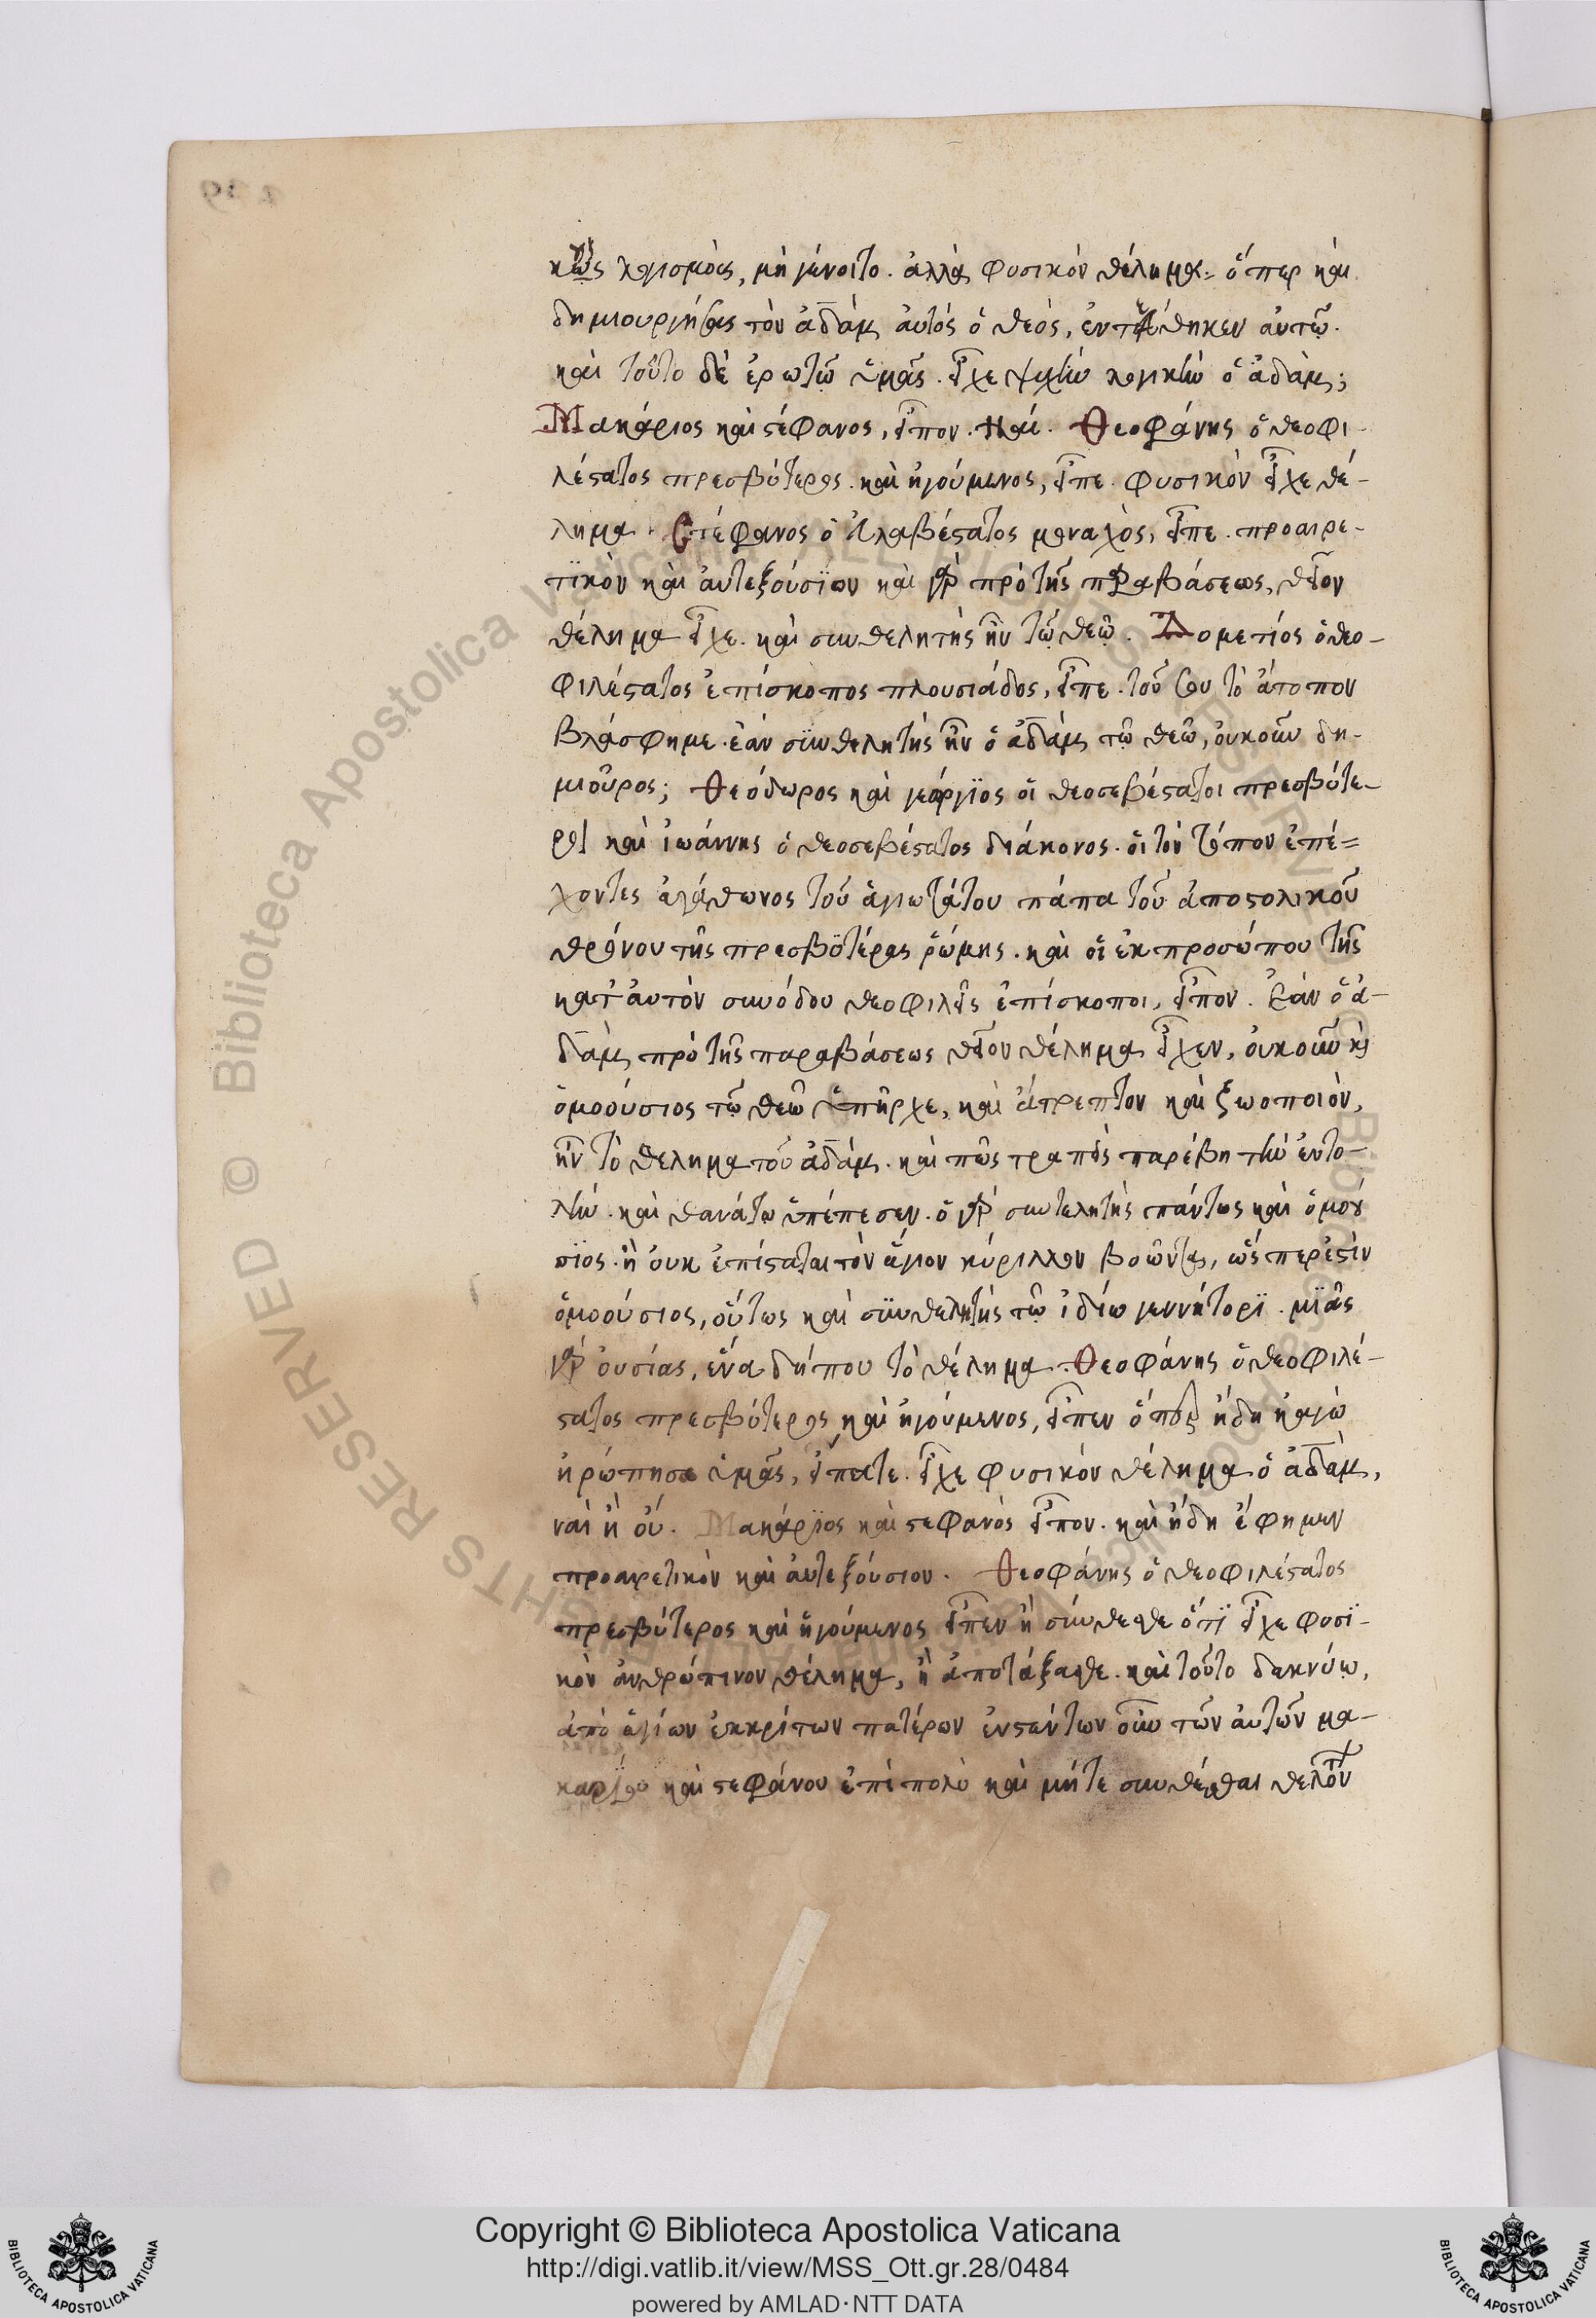 κῶς λογισμοὺς, μὴ γένοιτο. ἀλλὰ φυσικὸν θέλημα. ὅπερ καὶ
δημιουργήσας τὸν ἀδὰμ αὐτὸς ὁ θεὸς, ἐντέθηκεν αὐτῶ.
καὶ τοῦτο δὲ ἐρωτῶ ὑμᾶς. εἶχε ψυχὴν λογικὴν ὁ ἀδὰμ;
Μακάριος καὶ στέφανος, εἶπον. ναί. Θεοφάνης ὁ θεοφι-
λέστατος πρεσβύτερος καὶ ἡγούμενος, εἶπε. φυσικὸν εἶχε θέ-
λημα. Στέφανος ὁ εὐλαβέστατος μοναχὸς, εἶπε. προαιρε-
τϊκὸν καὶ αὐτεξούσϊον καὶ γὰρ πρὸ τῆς παραβάσεως, θεῖον
θέλημα εἶχε. καὶ συνθελητὴς ἦν τῶ θεῶ. Δομετίος ὁ θεο-
φιλέστατος ἐπίσκοπος πλουσιάδος, εἶπε. τοῦ σου τὸ ἄτοπον
βλάσφημε. ἐὰν σϋνθελητὴς ἦν ὁ ἀδὰμ τῶ θεῶ, οὐκοῦν δη-
μιοῦρος; Θεόδωρος καὶ γεώργϊος οἱ θεοσεβέστατοι πρεσβύτε-
ροι καὶ ἰωάννης ὁ θεοσεβέστατος διάκονος. οἱ τὸν τόπον ἐπέ=
χοντες ἀγάθωνος τοῦ ἁγιωτάτου πάπα τοῦ ἀποστολικοῦ
θρόνου τῆς πρεσβϋτέρας ῥώμης. καὶ οἱ ἐκ προσώπου τῆς
κατ' αὐτὸν συνόδου θεοφιλεῖς ἐπίσκοποι, εἶπον. Ἐὰν ὁ ἀ-
δὰμ πρὸ τῆς παραβάσεως θεῖον θέλημα εἶχεν, οὐκοῦν κ
ὁμοούσιος τῶ θεῶ ὑπῆρχε, καὶ ἄτρεπτον καὶ ζωοποιὸν,
ἦν τὸ θελημα τοῦ ἀδὰμ. καὶ πῶς τραπεὶς παρέβη τὴν ἐντο-
λὴν. καὶ θανάτω ὑπέπεσεν. ὁ γὰρ συντελητὴς πάντως καὶ ὁμού
σϊος. ἢ οὐκ ἐπίσταται τὸν ἅγιον κύριλλον βοῶντα, ὥσπερ ἐστὶν
ὁμοούσιος, οὕτως καὶ σϋνθελητὴς τῶ ἰδίω γεννήτορϊ. μϊᾶς
γὰρ οὐσίας, ἕνα δήπου τὸ θέλημα. Θεοφάνης ὁ θεοφιλέ-
στατος πρεσβύτερος καὶ ἡγούμενος, εἶπεν ὅπερ ἤδη καγὼ
ἠρώτησα ὑμᾶς, εἴπατε. εἶχε φυσικὸν θέλημα ὁ ἀδὰμ,
ναὶ ἢ οὔ. Μακάρϊος καὶ στεφανὸς εἶπον. καὶ ἤδη ἔφημεν
προαιρετικὸν καὶ αὐτεξούσιον. Θεοφάνης ὁ θεοφιλέστατος
πρεσβύτερος καὶ ἡγούμενος εἶπεν ἢ σύνθεσθε ὅτϊ εἶχε φυσϊ-
κὸν ἀνθρώπινον θέλημα, ἢ ἀποτάξασθε. καὶ τοῦτο δεικνύω,
ἀπὸ ἁγίων ἐκκρίτων πατέρων ἐνστάντων οὖν τῶν αὐτῶν μα-
καρίου καὶ στεφάνου ἐπὶ πολὺ καὶ μήτε συνθέσθαι θελόντ